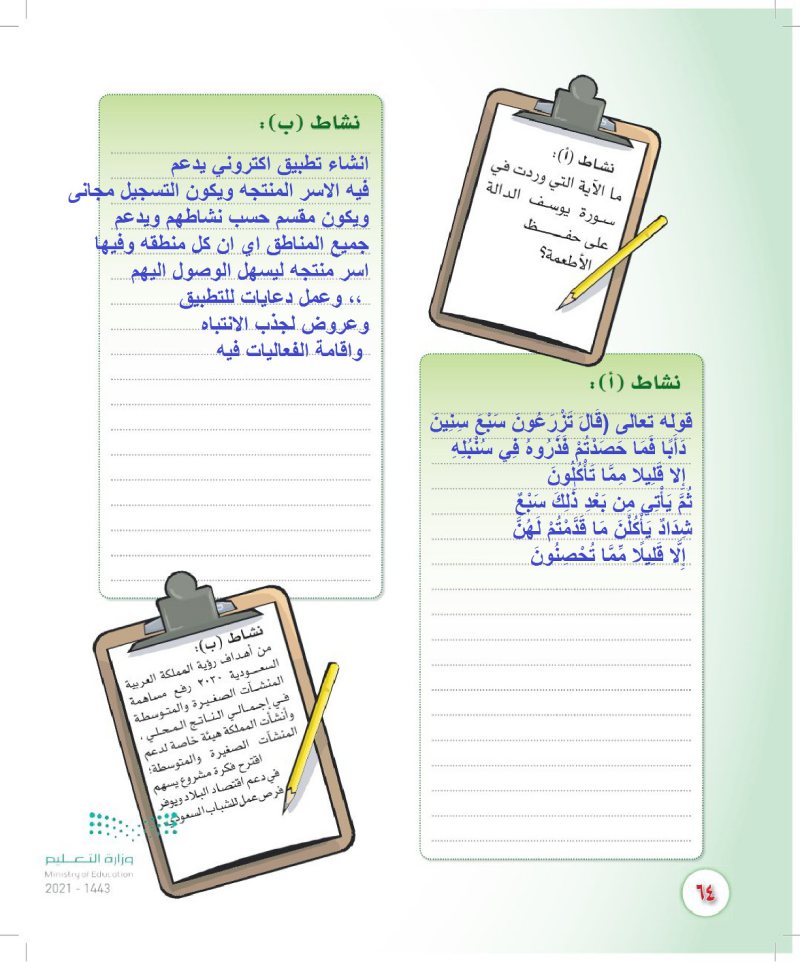 نشاط (أ):
ما الآية التي وردت في
سورة يوسف الدالة
على حفـــــظ
الأطعمة؟
نشاط (أ):
قوله تعالى (قَالَ تَزْرَعُونَ سَبْعَ سِنِينَ
دَأَبًا فَمَا حَصَدْتُمْ فَذَرُوهُ فِي سُنْبُلِهِ
إِلا قَلِيلا مِمَّا تَأْكُلُونَ
ثُمَّ يَأْتِي مِن بَعْدِ ذَٰلِكَ سَبْعٌ
شِدَادٌ يَأْكُلْنَ مَا قَدَّمْتُمْ لَهُنَّ
إِلَّا قَلِيلًا مِّمَّا تُحْصِنُونَ
نشاط (ب):
انشاء تطبيق اكتروني يدعم
فيه الاسر المنتجه ويكون التسجيل مجانى
ويكون مقسم حسب نشاطهم ويدعم
جميع المناطق اي ان كل منطقه وفيها
اسر منتجه ليسهل الوصول اليهم
،، وعمل دعايات للتطبيق
وعروض لجذب الانتباه
واقامة الفعاليات فيه
نشاط (ب):
من أهداف رؤية المملكة العربية
السعودية ٢٠٣٠ رفع مساهمة
المنشآت الصغيرة والمتوسطة
في إجمالي الناتج المحلي،
وأنشأت المملكة هيئة خاصة لدعم
المنشآت الصغيرة والمتوسطة؛
اقترح فكرة مشروع يسهم
في دعم اقتصاد البلاد ويوفر
فرص عمل للشباب السعودي.
وزارة التعـليم
Ministry of Education
2021 - 1443
٦٤